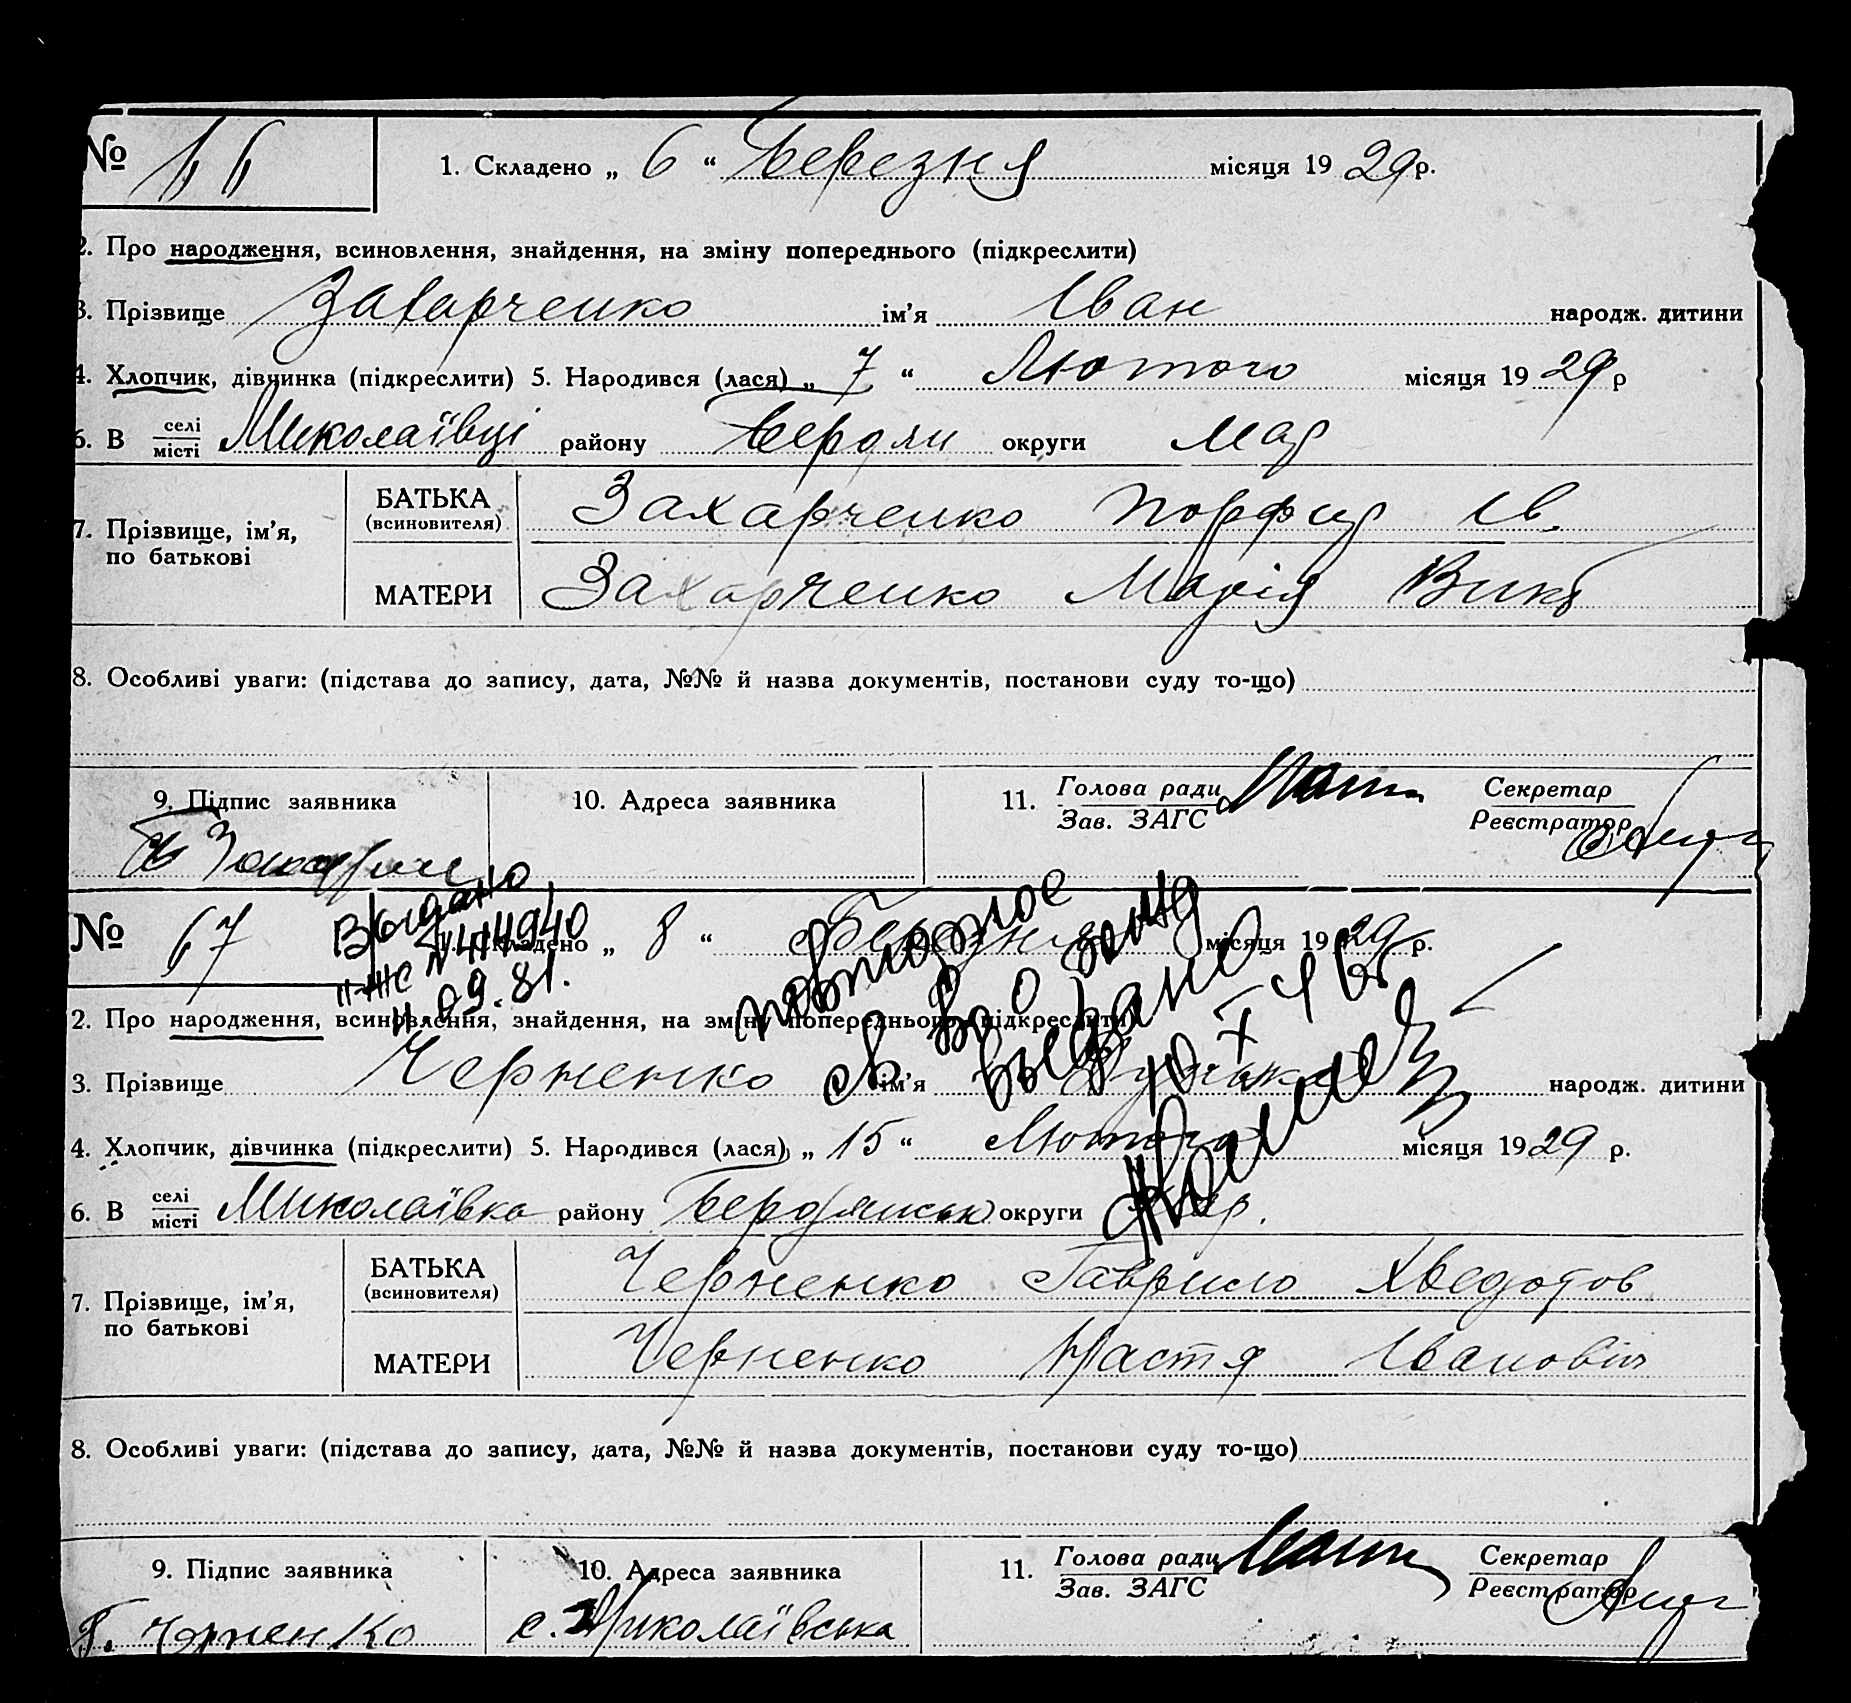 № 66
1. Складено „ 6 “ Березня місяця 1929 р.
2. Про народження, всиновлення, знайдення, на зміну попереднього (підкреслити)
3. Прізвище Захарченко ім’я Іван народж. дитини
4. Хлопчик, дівчинка (підкреслити) 5. Народився (лася) „ 7 “ Лютого місяця 1929 р
6. В селі/місті Миколаївці району Бердян округи Мар
7. Прізвище, ім’я, по батькові
БАТЬКА (всиновителя) Захарченко Порфир Ів.
МАТЕРИ Захарченко Марія Викт
8. Особливі уваги: (підстава до запису, дата, №№ й назва документів, постанови суду то-що)
9. Підпис заявника
10. Адреса заявника
11. Голова ради / Зав. ЗАГС
Секретар / Реєстратор
№ 67
Выдано
II-ЖС № 4114940
11.09.81.
1. Складено „ 8 “ Березня місяця 1929 р.
повторное
св во о
выдано
2. Про народження, всиновлення, знайдення, на зміну попереднього (підкреслити)
3. Прізвище Черненко ім’я народж. дитини
4. Хлопчик, дівчинка (підкреслити) 5. Народився (лася) „ 15 “ Лютого місяця 1929 р.
6. В селі/місті Миколаївка району Бердянськ округи Мар.
7. Прізвище, ім’я, по батькові
БАТЬКА (всиновителя) Черненко Гаврило Хведотов
МАТЕРИ Черненко Настя Іванович
8. Особливі уваги: (підстава до запису, дата, №№ й назва документів, постанови суду то-що)
9. Підпис заявника
10. Адреса заявника
11. Голова ради / Зав. ЗАГС
Секретар / Реєстратор
Г. Черненко
с. Миколаївська